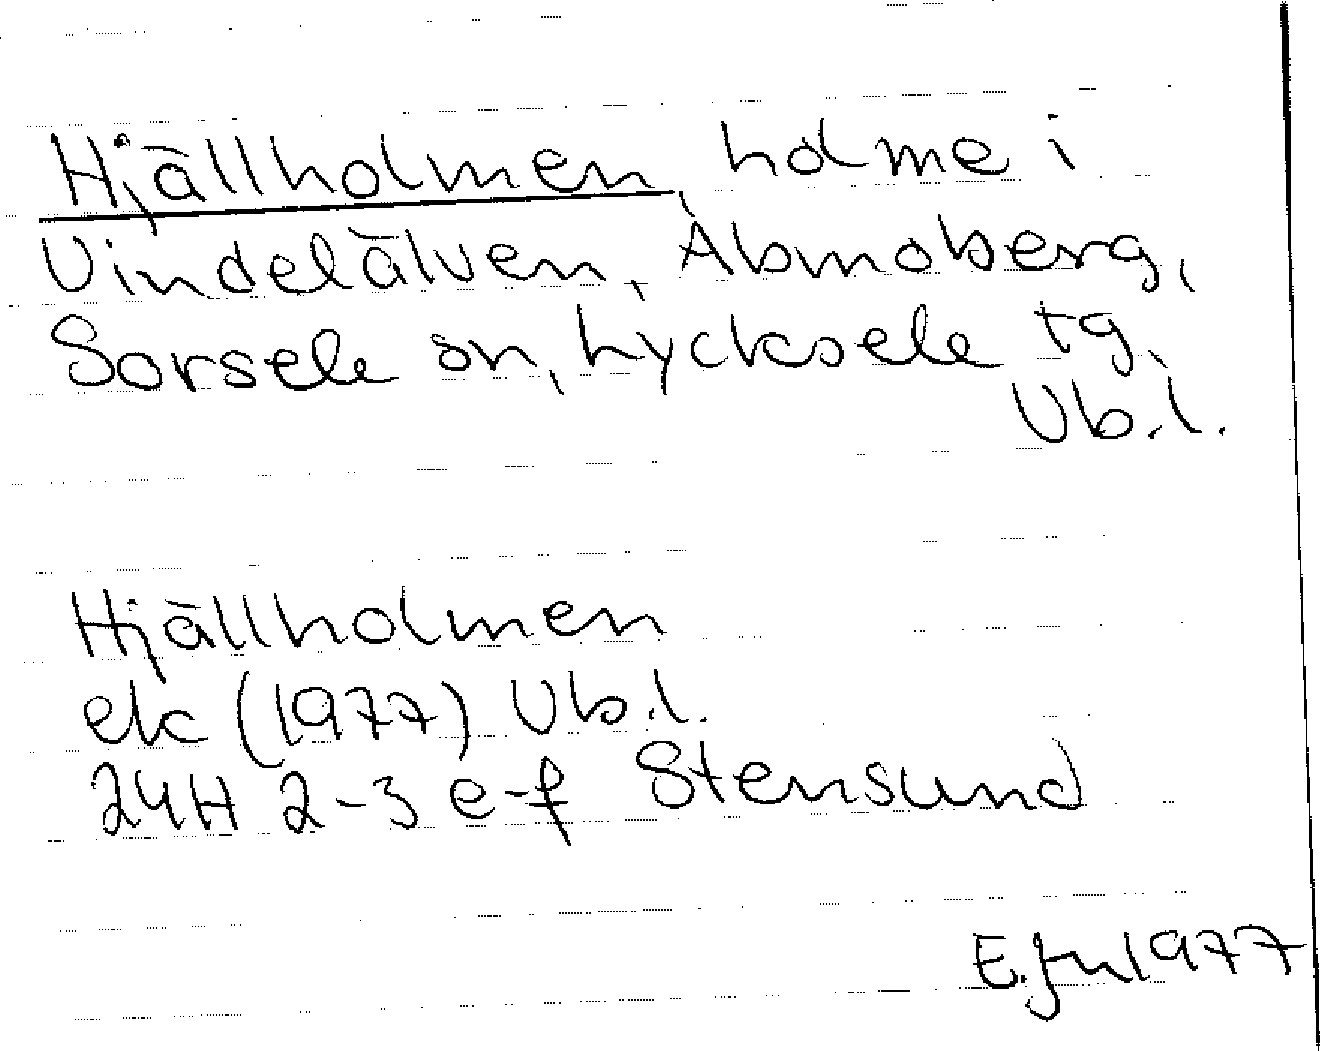 Hjällholmen, holme i
Vindelälven, Abmoberg,
Sorsele sn, Lycksele tg,
Vb.l.
Hjällholmen
ek (1977) Vb.l.
24H 2-3 e-f Stensund
1977